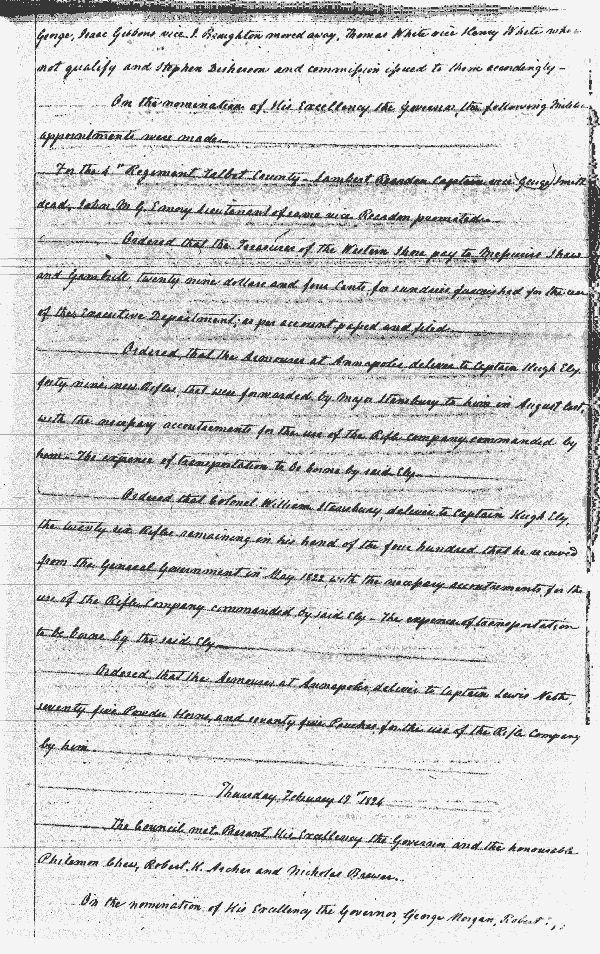 George, Isaac Gibbons vice J. Broughton moved away, Thomas White vice Henry White who
not qualify and Stephen and commission issued to them accordingly –
On the nomination of His Excellency the Governor, the following Militia
appointments were made.
For the 4th Regiment Talbot County – Lambert Reardon Captain vice George Smith
dead, John M G. Emory Lieutenant of same vice Reardon promoted.
Ordered that the Treasurer of the Western Shore pay to Messieurs Shaw
and Gambrill, twenty nine dollars and four Cents, for sundries furnished for the use
of the Executive Department, as per account passed and filed.
Ordered, that the Armourer at Annapolis, deliver to Captain Hugh Ely
forty nine new Rifles, that were forwarded by Major Stansbury to him in August last,
with the necessary accoutrements for the use of the Rifle company commanded by
him. The expence of transportation to be borne by said Ely.
Ordered that Colonel William Stansbury, deliver to Captain Hugh Ely
the twenty six Rifles remaining in his hand of the four hundred that he received
from the General Government in May 1822, with the necessary accoutrements for the
use of the Rifle Company commanded by said Ely – The expence of transportation
to be borne by the said Ely.
Ordered, that the Armourer at Annapolis, deliver to Captain Lewis
seventy five Powder Horns, and seventy five Pouches for the use of the Rifle Company
by him
Thursday February 19th 1824
The Council met Present His Excellency the Governor and the honourable
Philemon Chew, Robert H. Archer and Nicholas Brewer.
On the nomination of His Excellency the Governor George Morgan, Robert